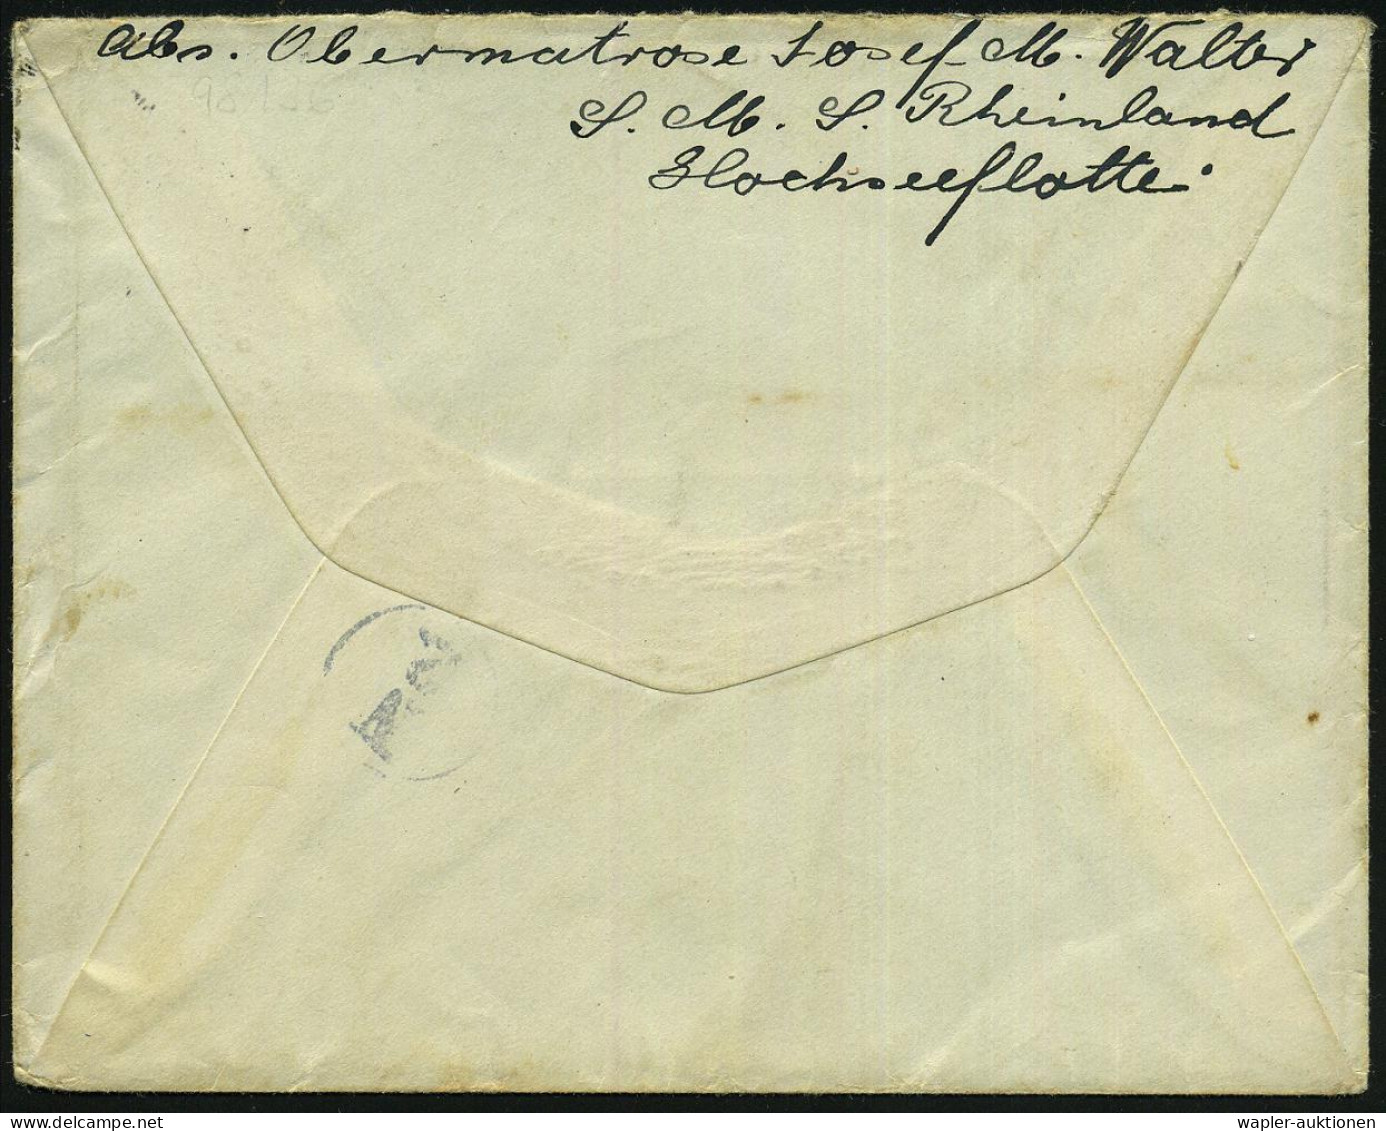 Abs. Obermatrose Josef M. Walter
S. M. S. Rheinland
Hochseeflotte.
wapler-auktionen